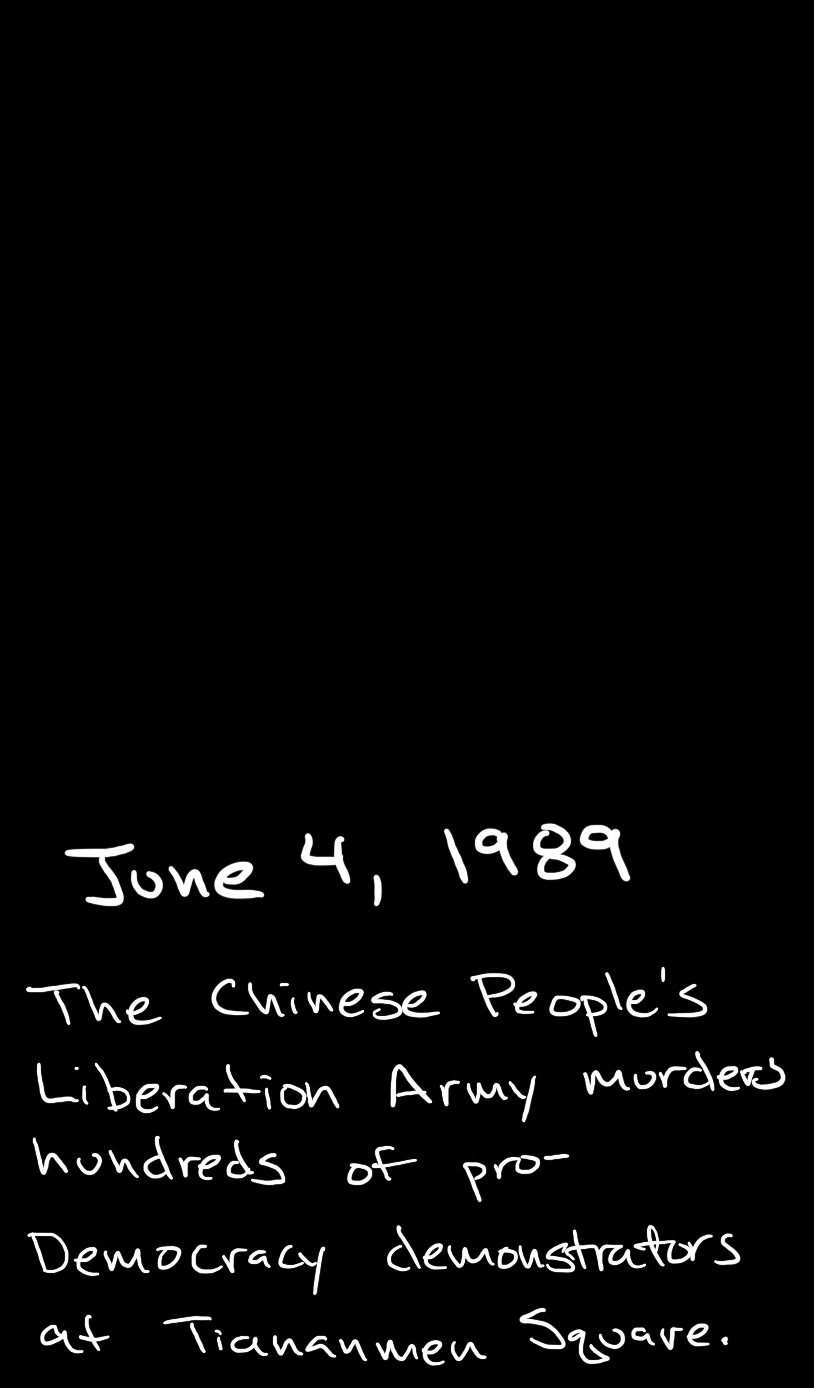 June 4, 1989
The Chinese People's
Liberation Army murders
hundreds of pro-
Democracy demonstrators
at Tiananmen Square.